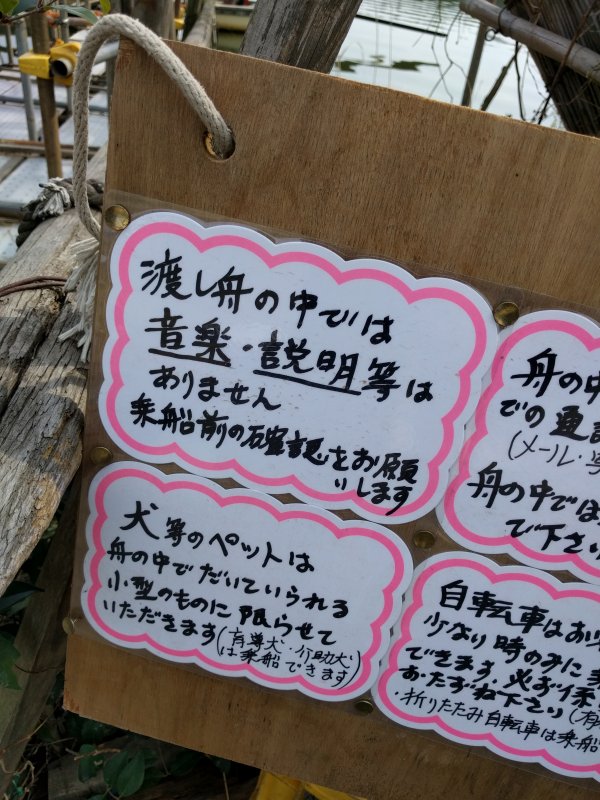 渡し舟の中では
音楽・説明等は
ありません
乗船前の確認をお願
いします
犬等のペットは
舟の中でだいていられる
小型のものに限らせて
いただきます(盲導犬・介助犬
は乗船できます)
舟の中
での通
(メール・
舟の中では
で下さ
自転車はお
少ない時のみに
できます。必ず係
おたずね下さい(有
・折りたたみ自転車は乗船